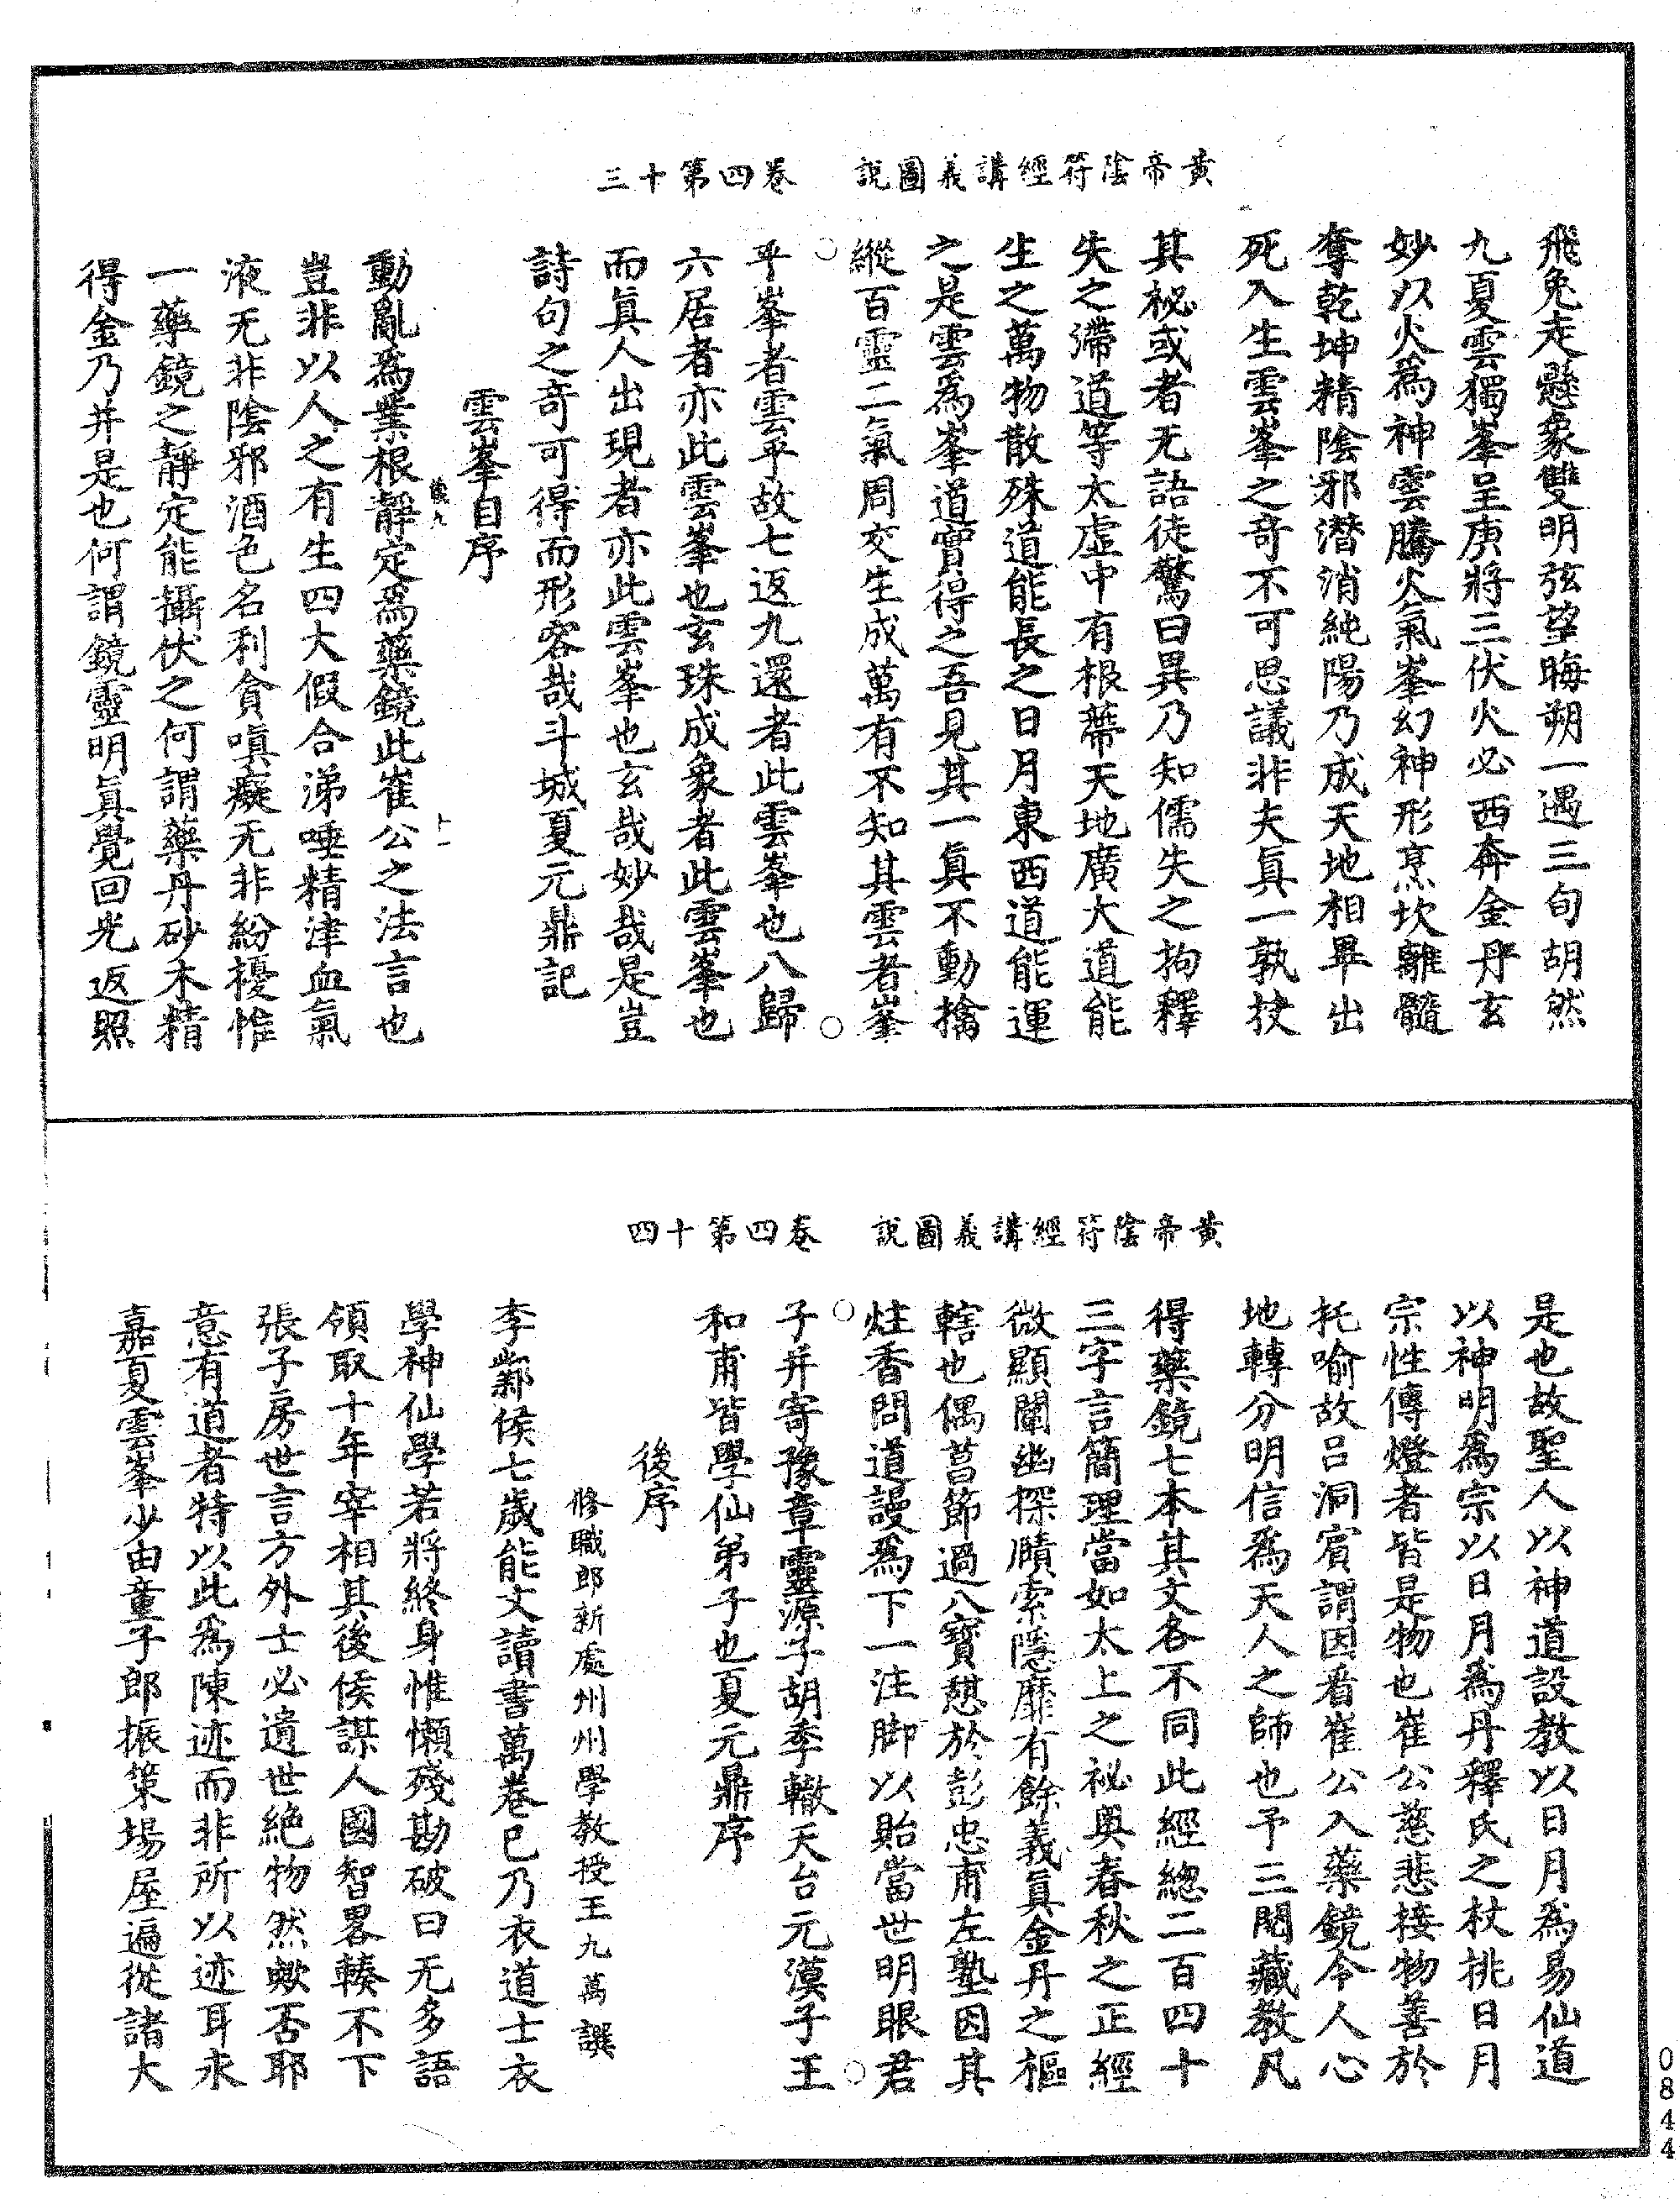 黃帝陰符經講義圖說　卷四第十三
飛兔走懸象雙明弦望晦朔一遇三旬胡然
九夏雲獨峯呈庚將三伏火必西奔金丹玄
妙以火為神雲騰火氣峯幻神形烹坎離髓
奪乾坤精陰邪潛消純陽乃成天地相畢出
死入生雲峯之奇不可思議非夫真一孰挾
其祕或者无語徒驚曰異乃知儒失之拘釋
失之滯道等太虛中有根蔕天地廣大道能
生之萬物散殊道能長之日月東西道能運
之是雲為峯道實得之吾見其一真不動擒
縱百靈二氣周交生成萬有不知其雲者峯
乎峯者雲乎故七返九還者此雲峯也八歸
六居者亦此雲峯也玄珠成象者此雲峯也
而真人出現者亦此雲峯也玄哉妙哉是豈
詩句之奇可得而形容哉斗城夏元鼎記
雲峯自序
動亂為業根靜定為藥鏡此崔公之法言也
豈非以人之有生四大假合涕唾精津血氣
液无非陰邪酒色名利貪嗔癡无非紛擾惟
一藥鏡之靜定能攝伏之何謂藥丹砂木精
得金乃并是也何謂鏡靈明真覺回光返照
黃帝陰符經講義圖說　卷四第十四
是也故聖人以神道設教以日月為易仙道
以神明為宗以日月為丹釋氏之杖挑日月
宗性傳燈者皆是物也崔公慈悲接物善於
托喻故呂洞賓謂因看崔公入藥鏡令人心
地轉分明信為天人之師也予三閱藏教凡
得藥鏡七本其文各不同此經總二百四十
三字言簡理當如太上之祕奧春秋之正經
微顯闡幽探賾索隱靡有餘義真金丹之樞
轄也偶菖節過八寶憩於彭忠甫左塾因其
炷香問道謾為下一注腳以貽當世明眼君
子并寄豫章靈源子胡季轍天台元漠子王
和甫皆學仙弟子也夏元鼎序
後序
修職郎新處州州學教授王九萬譔
李鄴侯七歲能文讀書萬卷已乃衣道士衣
學神仙學若將終身惟懶殘勘破曰无多語
領取十年宰相其後侯謀人國智畧輳不下
張子房世言方外士必遺世絕物然歟否耶
意有道者特以此為陳迹而非所以迹耳永
嘉夏雲峯少由童子郎振策場屋遍從諸大
0844